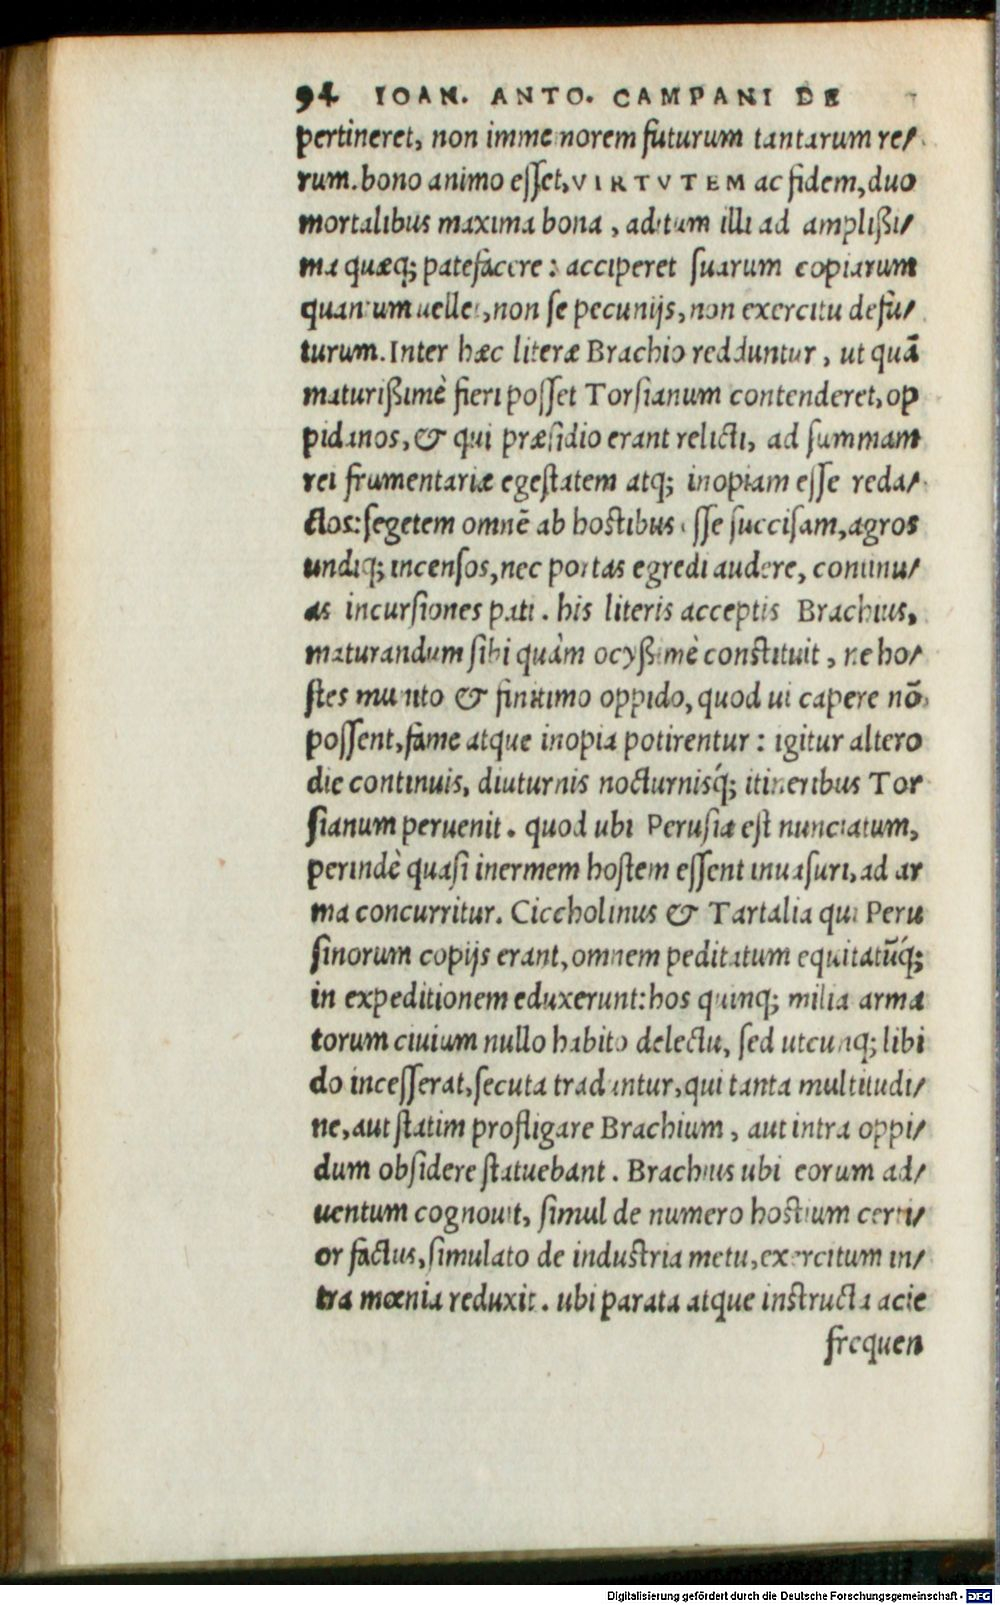 94 IOAN. ANTO. CAMPANI DE
pertineret, non immemorem futurum tantarum re/
rum. bono animo esſet, VIRTVTEM ac fidem, duo
mortalibus maxima bona, aditum illi ad amplißi/
ma quæq; patefacere: acciperet ſuarum copiarum
quantum uellet, non ſe pecunijs, non exercitu defu/
turum. Inter hæc literæ Brachio redduntur, ut quã
maturißimè fieri poſſet Torſianum contenderet, op
pidanos, & qui præſidio erant relicti, ad ſummam
rei frumentariæ egeſtatem atq; inopiam eſſe reda/
ctos: ſegetem omnẽ ab hostibus eſſe ſucciſam, agros
undiq; incenſos, nec portas egredi audere, continu/
as incurſiones pati. his literis acceptis Brachius,
maturandum ſibi quàm ocyßimè constituit, ne ho/
ſtes munito & finitimo oppido, quod ui capere nõ
poſſent, fame atque inopia potirentur: igitur altero
die continuis, diuturnis nocturnisq́; itineribus Tor
ſianum peruenit. quod ubi Peruſiæ eſt nunciatum,
perindè quaſi inermem hoſtem eſſent inuaſuri, ad ar
ma concurritur. Ciccholinus & Tartalia qui Peru
ſinorum copijs erant, omnem peditatum equitatũq́;
in expeditionem eduxerunt: hos quinq; milia arma
torum ciuium nullo habito delectu, ſed utcunq; libi
do inceſſerat, ſecuta traduntur, qui tanta multitudi/
ne, aut ſtatim profligare Brachium, aut intra oppi/
dum obſidere ſtatuebant. Brachius ubi eorum ad/
uentum cognouit, ſimul de numero hostium certi/
or factus, ſimulato de industria metu, exercitum in/
tra mœnia reduxit. ubi parata atque instructa acie
frequen
Digitalisierung gefördert durch die Deutsche Forschungsgemeinschaft - DFG